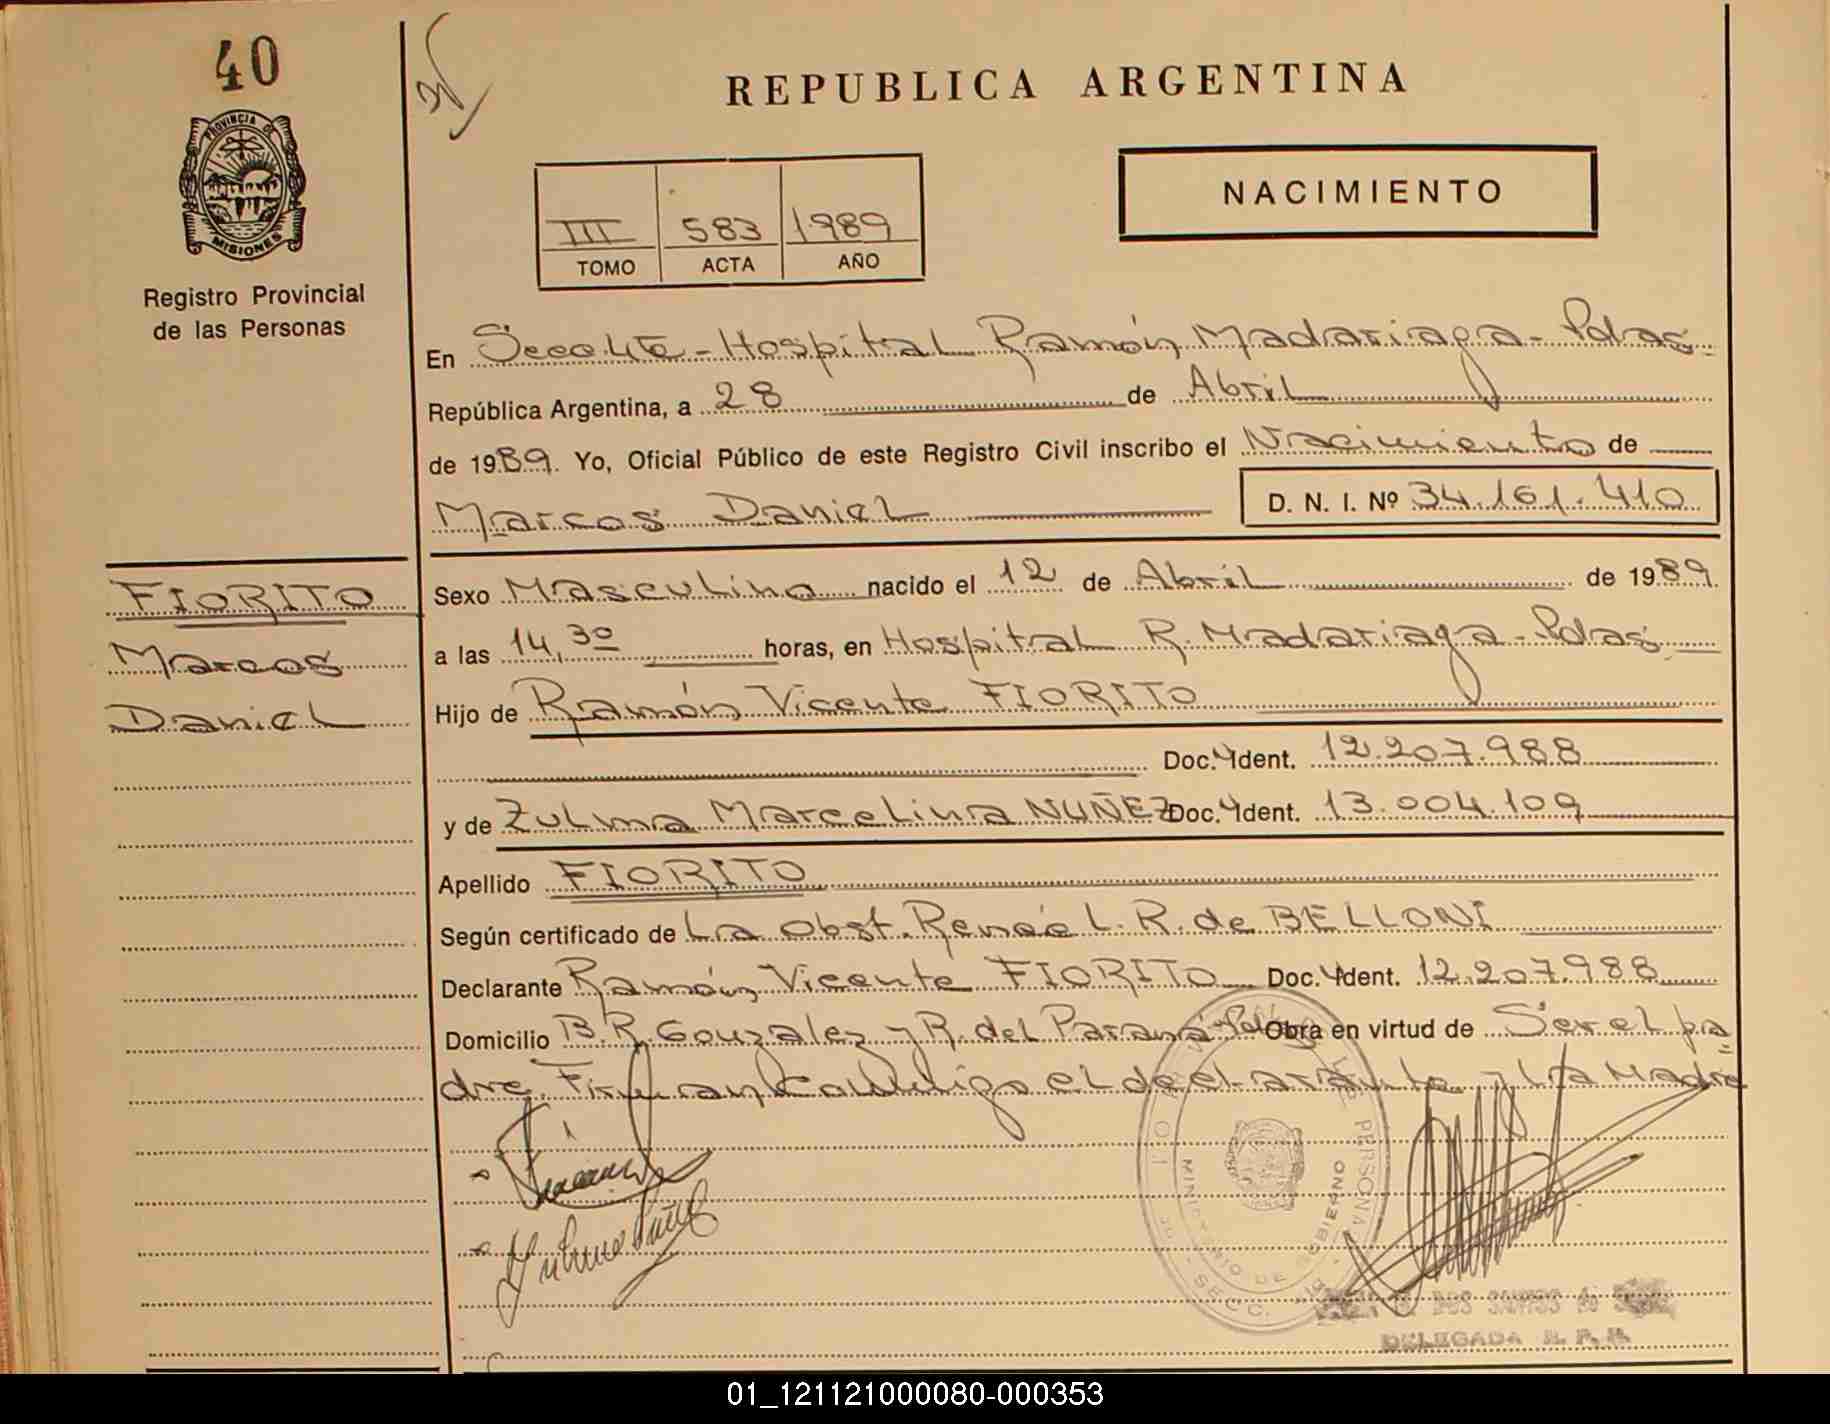 40
REPUBLICA ARGENTINA
PROVINCIA DE
MISIONES
Registro Provincial
de las Personas
NACIMIENTO
III 583 1989
TOMO ACTA AÑO
En Secc.4te - Hospital Ramón Madariaga - Pdas.
República Argentina, a 28 de Abril
de 1989. Yo, Oficial Público de este Registro Civil inscribo el Nacimiento de
Marcos Daniel D. N. I. Nº 34.161.410
FIORITO
Marcos
Daniel
Sexo Masculino nacido el 12 de Abril de 1989.
a las 14,30 horas, en Hospital R. Madariaga - Pdas
Hijo de Ramón Vicente FIORITO
Doc. Ident. 12.207.988
y de Zulma Marcelina NUÑEZ Doc. Ident. 13.004.109
Apellido FIORITO
Según certificado de La Obst. Renée L. R. de BELLONI
Declarante Ramón Vicente FIORITO Doc. Ident. 12.207.988
Domicilio B. R. Gonzalez y R. del Paraná - Pdas Obra en virtud de Ser el pa
dre. Firman conmigo el declarante y la Madre
MINISTERIO DE GOBIERNO
SECC.
DOS SANTOS de
DELEGADA R. P. P.
01_121121000080-000353